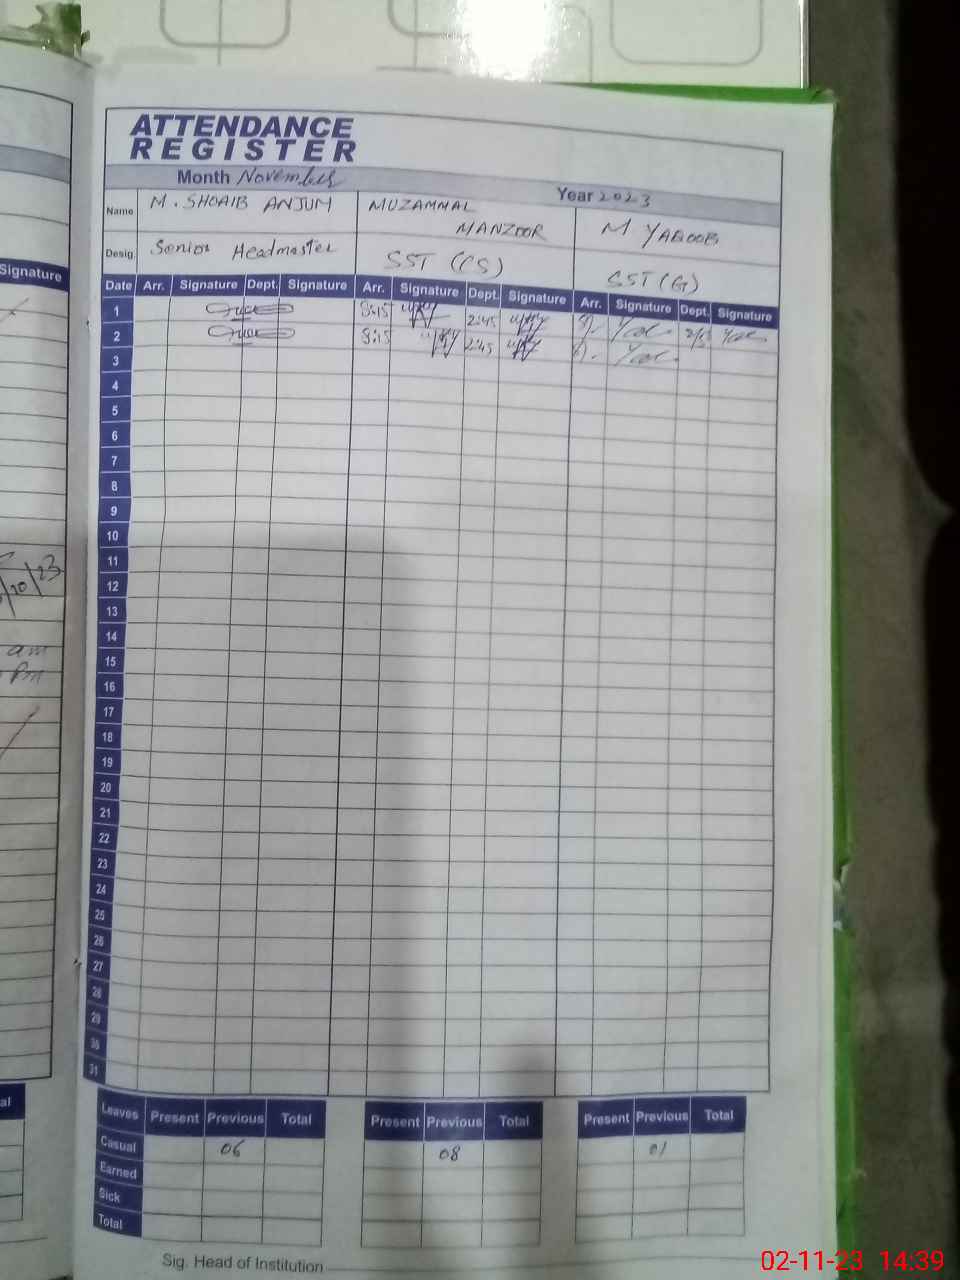 ATTENDANCE
REGISTER
Month November
Year 2023
Name M. SHOAIB ANJUM MUZAMMAL MANZOOR M. YAQOOB
Desig. Senior Headmaster SST (CS) SST (G)
Signature
Date Arr. Signature Dept. Signature Arr. Signature Dept. Signature Arr. Signature Dept. Signature
1 8:15 2:45
2 8:15 2:45
3
4
5
6
7
8
9
10
11
12
13
14
15
16
17
18
19
20
21
22
23
24
25
26
27
28
29
30
31
/10/23
am
Pm
al
Leaves Present Previous Total Present Previous Total Present Previous Total
Casual 06 08 01
Earned
Sick
Total
Sig. Head of Institution
02-11-23 14:39